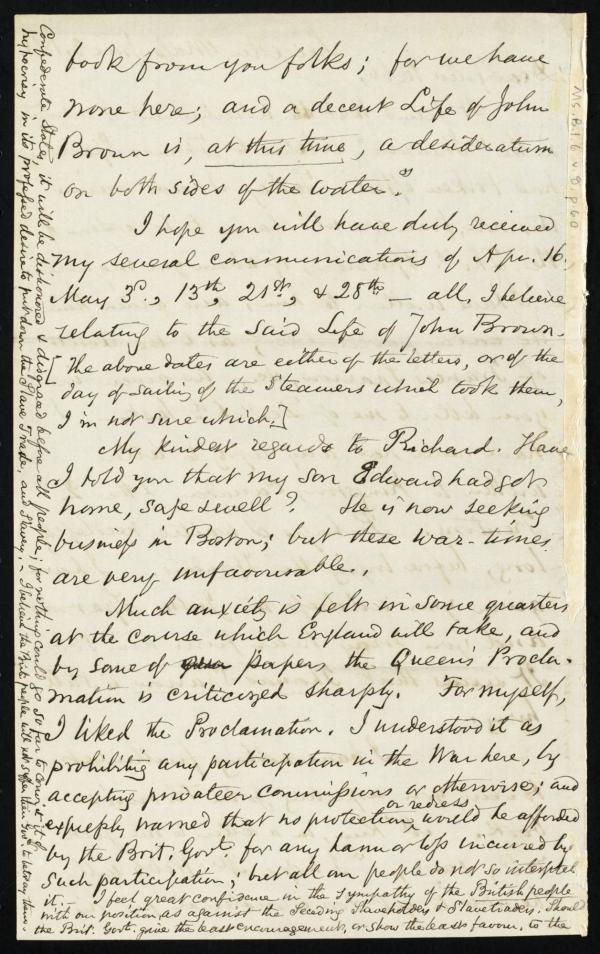 book from you folks; for we have
none here; and a decent Life of John
Brown is, at this time, a desideratum
on both sides of the water."
I hope you will have duly received
my several communications of Apr. 16,
May 3d., 13th, 21st, & 28th — all, I believe
relating to the said Life of John Brown.
[The above dates are either of the letters, or of the
day of sailing of the Steamers which took them,
I'm not sure which.]
My kindest regards to Richard. Have
I told you that my son Edward had got
home, safe & well? He is now seeking
business in Boston; but these war-times
are very unfavourable.
Much anxiety is felt in some quarters
at the course which England will take, and
by some of our papers the Queen's Procla-
mation is criticized sharply. For myself,
I liked the Proclamation. I understood it as
prohibiting any participation in the War here, by
accepting privateer commissions or otherwise; and
expressly warned that no protection or redress would be afforded
by the Brit. Govt. for any harm or loss incurred by
such participation; but all our people do not so interpret
it. — I feel great confidence in the sympathy of the British people
with our position as against the Seceding Slaveholders & Slavetraders. Should
the Brit. Govt. give the least encouragement, or show the least favour, to the
Confederate States, it will be dishonored & disgraced before all people; for nothing could go so far to convict it of
hypocrisy in its professed desire to put down the Slave Trade, and Slavery. — I believe the Brit. people will not suffer their Govt. to betray them.
MS.B.1.6 v.8, p.60